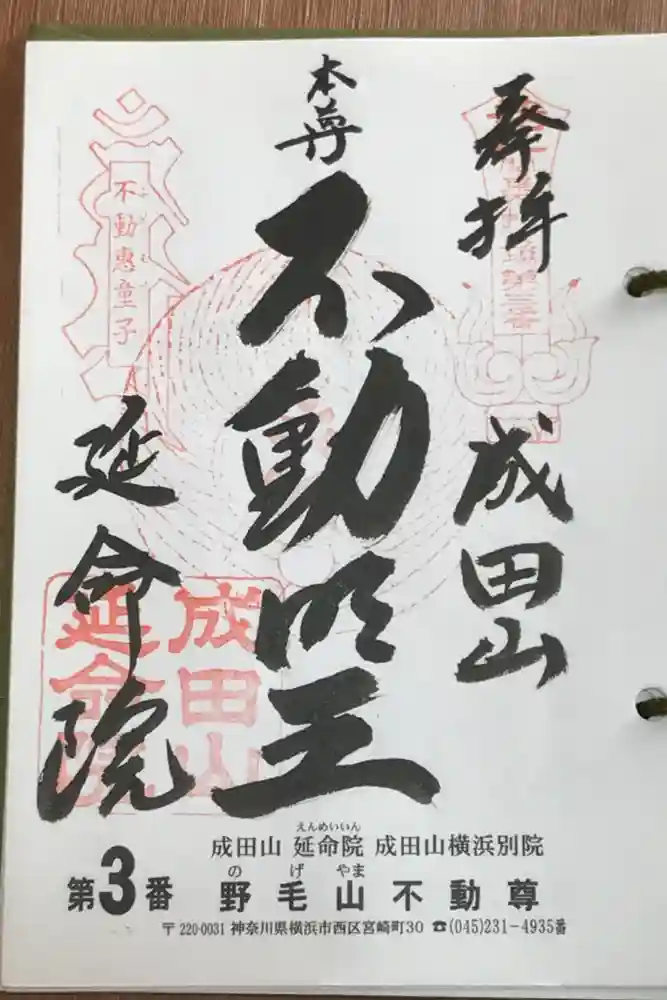 奉拝
成田山
本尊
不動明王
延命院
不動惠童子
成田山
延命院
えんめいいん
成田山 延命院 成田山横浜別院
の げ やま
第3番 野毛山不動尊
〒220-0031 神奈川県横浜市西区宮崎町30 ☎(045)231-4935番